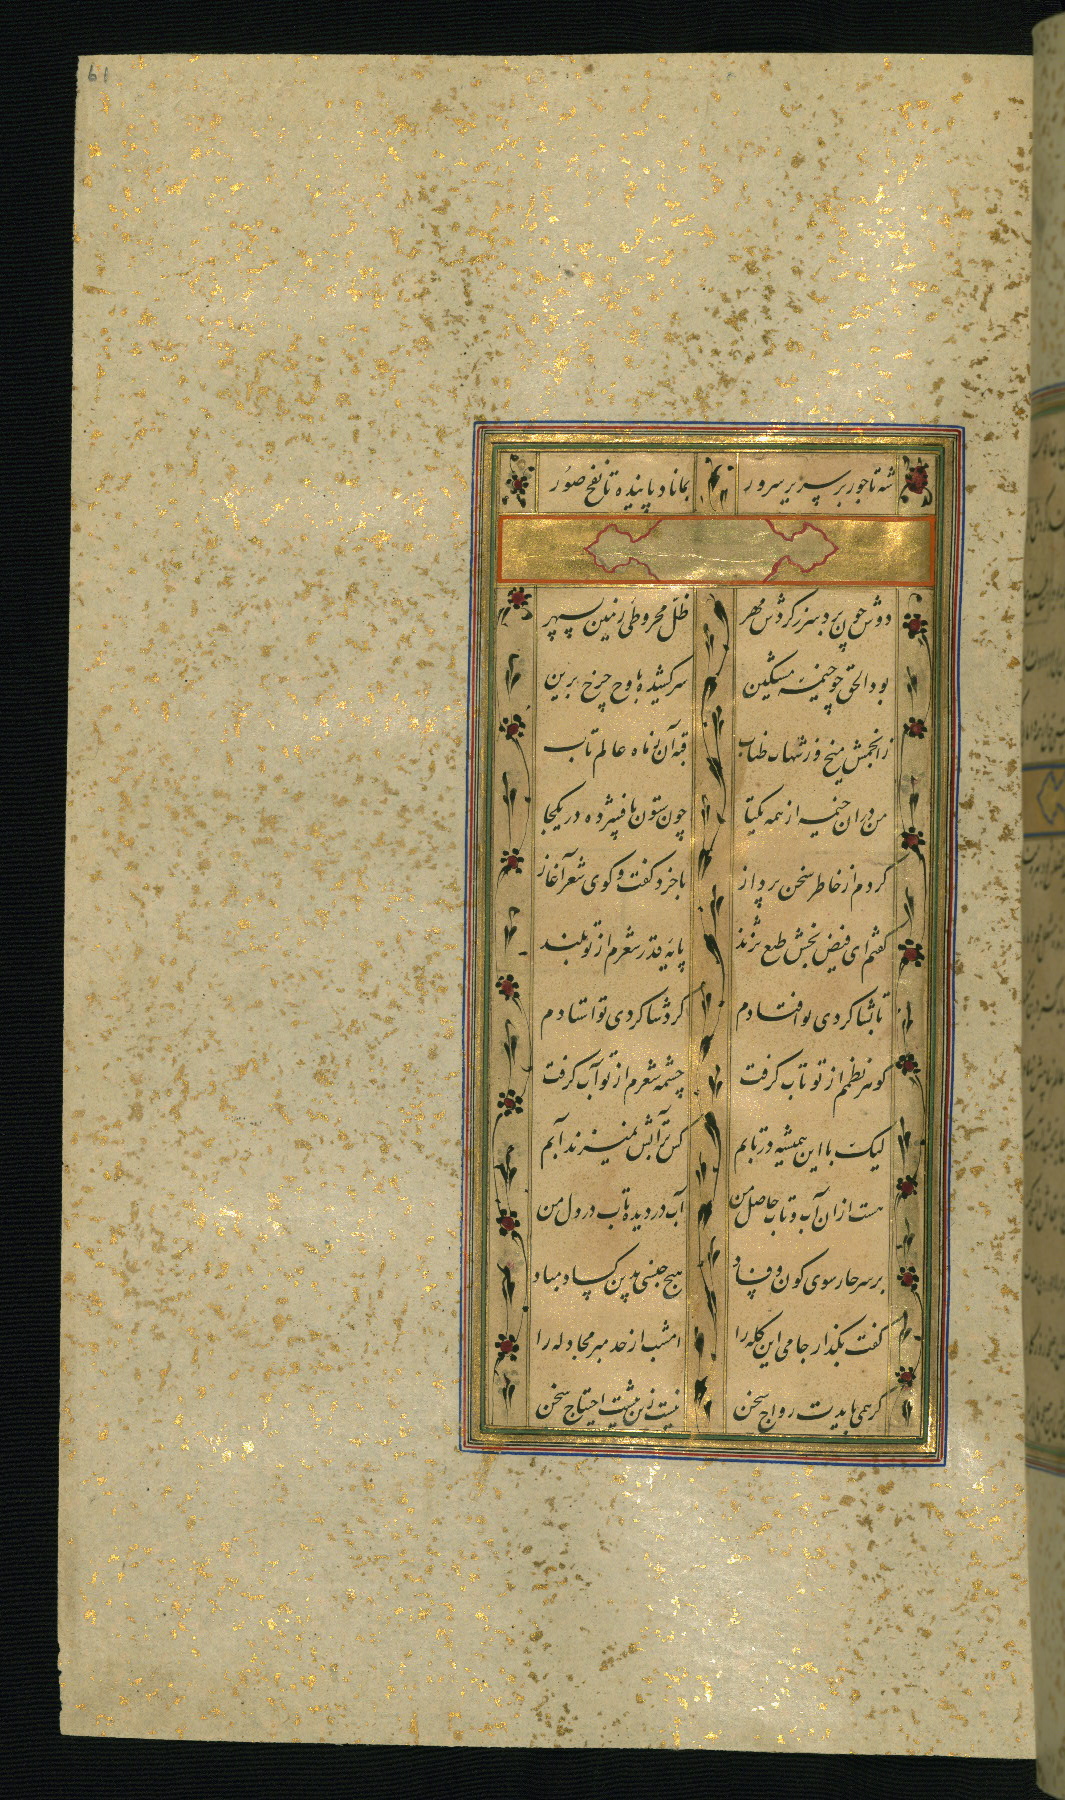 61
شه تاجور بر سریر سرور بماناد پاینده تا نفخ صور
دوش چون پرده بر ز گردش مهر ظل مخروطی زمین سپهر
بود الحق چو خیمه مشکین سر کشیده باوج چرخ برین
ز انجمش میخ وز شهاب طناب قبه آن ز ماه عالم تاب
من در ان خیمه از همه یکتا چون ستون پا فشرده در یکجا
کردم از خاطر سخن پرداز با خرد گفت و گوی شعر آغاز
گفتم ای فیض بخش طبع نژند پایه قدر شعرم از تو بلند
تا بشاگردی تو افتادم گرد شاگردی تو استادم
گوهر نظمم از تو تاب گرفت چشمه شعرم از تو آب گرفت
لیک با این همیشه در تابم کس بر آتش نمیزند آبم
هست ازان آب و تاب حاصل من آب در دیده تاب در دل من
بر سر چارسوی کون و فساد هیچ جنسی بدین کساد مباد
گفت بگذار جامی این گله را امشب از حد مبر مجادله را
گر همی بایدت رواج سخن نیست زین بیشت احتیاج سخن